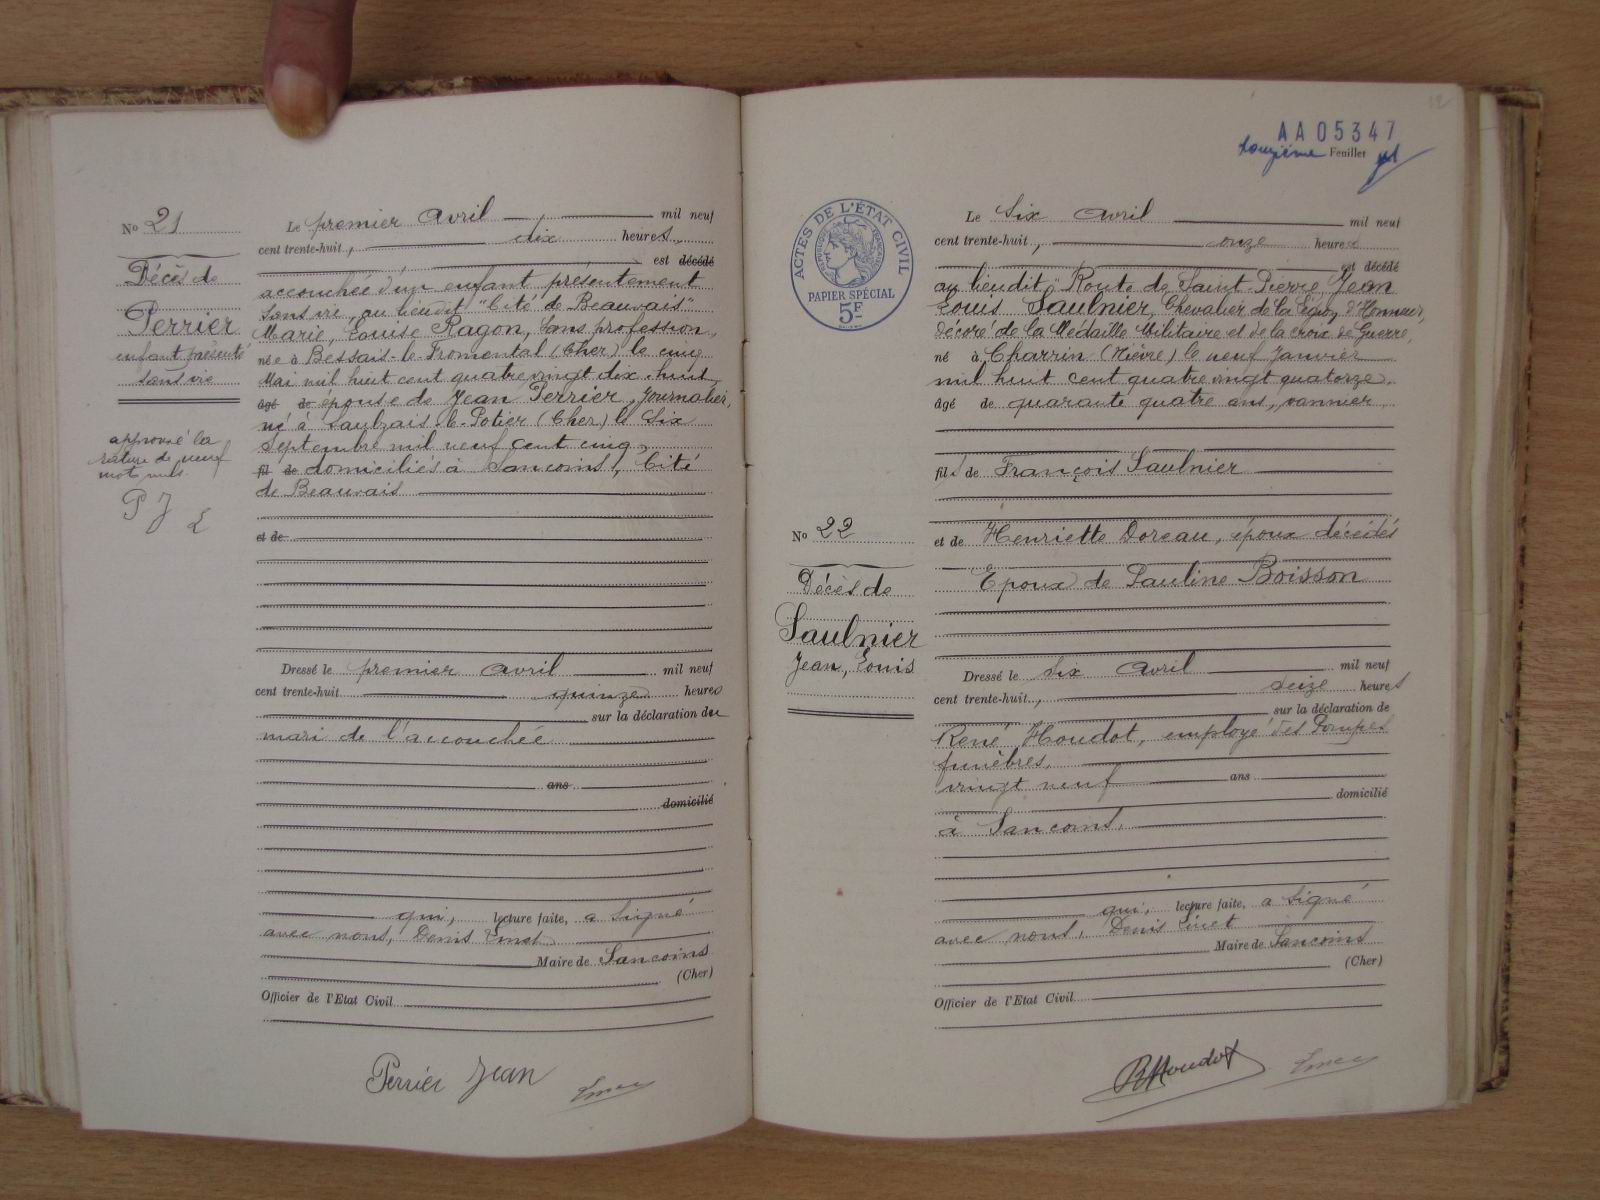 No 21
Décès de
Perrier
enfant présenté
sans vie
approuvé la
rature de neuf
mots nuls
P J
Le premier Avril mil neuf
cent trente-huit, dix heures,
est décédé
accouchée d'un enfant présentement
sans vie, au lieudit "Cité de Beauvais"
Marie, Louise Ragon, sans profession,
née à Bessais-le-Fromental (Cher) le cinq
Mai mil huit cent quatre vingt dix huit
âgé de épouse de Jean Perrier, journalier,
né à Saulzais-le-Potier (Cher) le six
septembre mil neuf cent cinq,
fil de domiciliés à Sancoins, Cité
de Beauvais
et de
Dressé le premier Avril mil neuf
cent trente-huit quinze heures
sur la déclaration du
mari de l'accouchée
ans
domicilié
qui, lecture faite, a signé
avec nous, Denis
Maire de Sancoins
(Cher)
Officier de l'Etat Civil
Perrier Jean
12
AA05347
douzième Feuillet
ACTES DE L'ÉTAT CIVIL
RÉPUBLIQUE FRANÇAISE
PAPIER SPÉCIAL
5F
No 22
Décès de
Saulnier
Jean, Louis
Le six Avril mil neuf
cent trente-huit, onze heures
est décédé
au lieudit "Route de Saint Pierre, Jean
Louis Saulnier, Chevalier de la Légion d'Honneur,
décoré de la Médaille Militaire et de la croix de Guerre,
né à Charrin (Nièvre) le neuf Janvier
mil huit cent quatre vingt quatorze
âgé de quarante quatre ans, vannier
fils de François Saulnier
et de Henriette Doreau, époux décédés
Epoux de Pauline Boisson
Dressé le six Avril mil neuf
cent trente-huit, seize heures
sur la déclaration de
René Houdot, employé des Pompes
funèbres,
vingt neuf ans
domicilié
à Sancoins,
qui, lecture faite, a signé
avec nous, Denis
Maire de Sancoins
(Cher)
Officier de l'Etat Civil
RHoudot